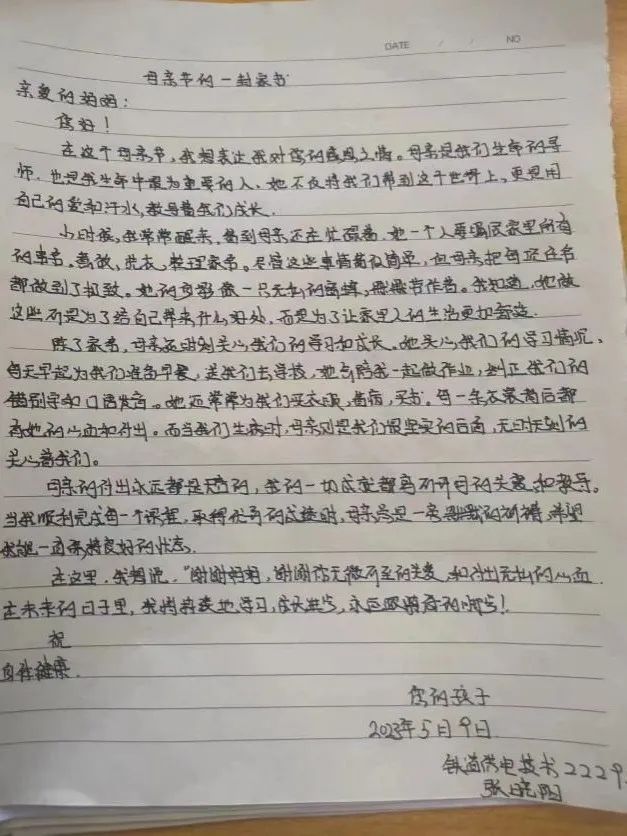 DATE / / NO
母亲节的一封家书
亲爱的妈妈:
您好!
在这个母亲节,我想表达我对您的感恩之情。母亲是我们生命的导
师,也是我生命中最为重要的人、她不仅将我们带到这个世界上,更是用
自己的爱和汗水,教导着我们成长.
小时候,我常常醒来,看到母亲还在忙碌着,她一个人要操民家里所有
的事务。煮饭,洗衣,整理家务。尽管这些事情看似简单,但母亲把每项任务
都做到了极致。她的身影像一只无私的蜜蜂,默默劳作着。我知道,她做
这些不是为了给自己带来什么好处,而是为了让家里人的生活更加舒适.
除了家务,母亲还时刻关心我们的学习和成长。她关心我们的学习情况、
每天早起为我们准备早餐,送我们去学校,她会陪我一起做作业,纠正我们的
错别字和口语发音。她还常常为我们买衣服,看病,买书。每一条衣裳背后都
有她的心血和付出。而当我们生病时,母亲则是我们最坚实的后盾,无时无刻的
关心着我们。
母亲的付出永远都是无声的,我的一切成就都离不开母的关爱和教导。
当我顺利完成每一个课程,取得优秀的成绩时,母亲总是一旁默默的祈祷,希望
我能一直保持良好的状态.
在这里,我想说,“谢谢妈妈,谢谢你无微不至的关爱和付出无私的心血.
在未来的日子里,我将持续地学习,成长进步,永远
祝
身体健康.
您的孩子
2023年5月9日
铁道供电技术2229.
张晓阳